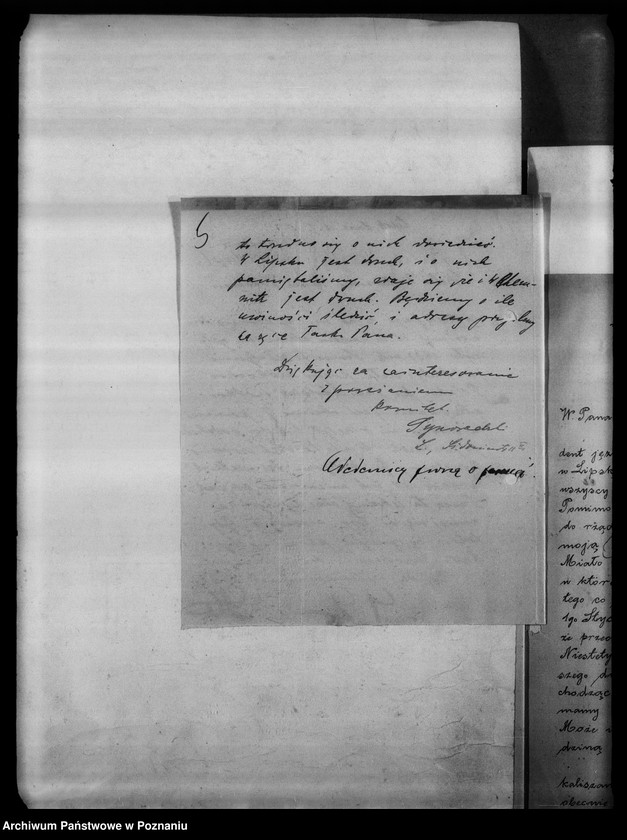 5
to trudno się o nich dowiedzieć.
W Lipsku jest dwuch, i o nich
pamiętaliśmy, zdaje się że i w Chem-
nitz jest dwuch. Będziemy o ile
możności śledzić i adresy
Pana.
Dziękując za zainteresowanie
z poważaniem
Komitet
Akademicy proszą o
W Pana
dent
w Lipsk
wszyscy
Pomimo
do rzą
moją
Miało
w któr
tego co
1go Stycz
że prze
Niestety
szego
chodząc
mamy
Może
dziną
kaliszan
obecnie
Archiwum Państwowe w Poznaniu